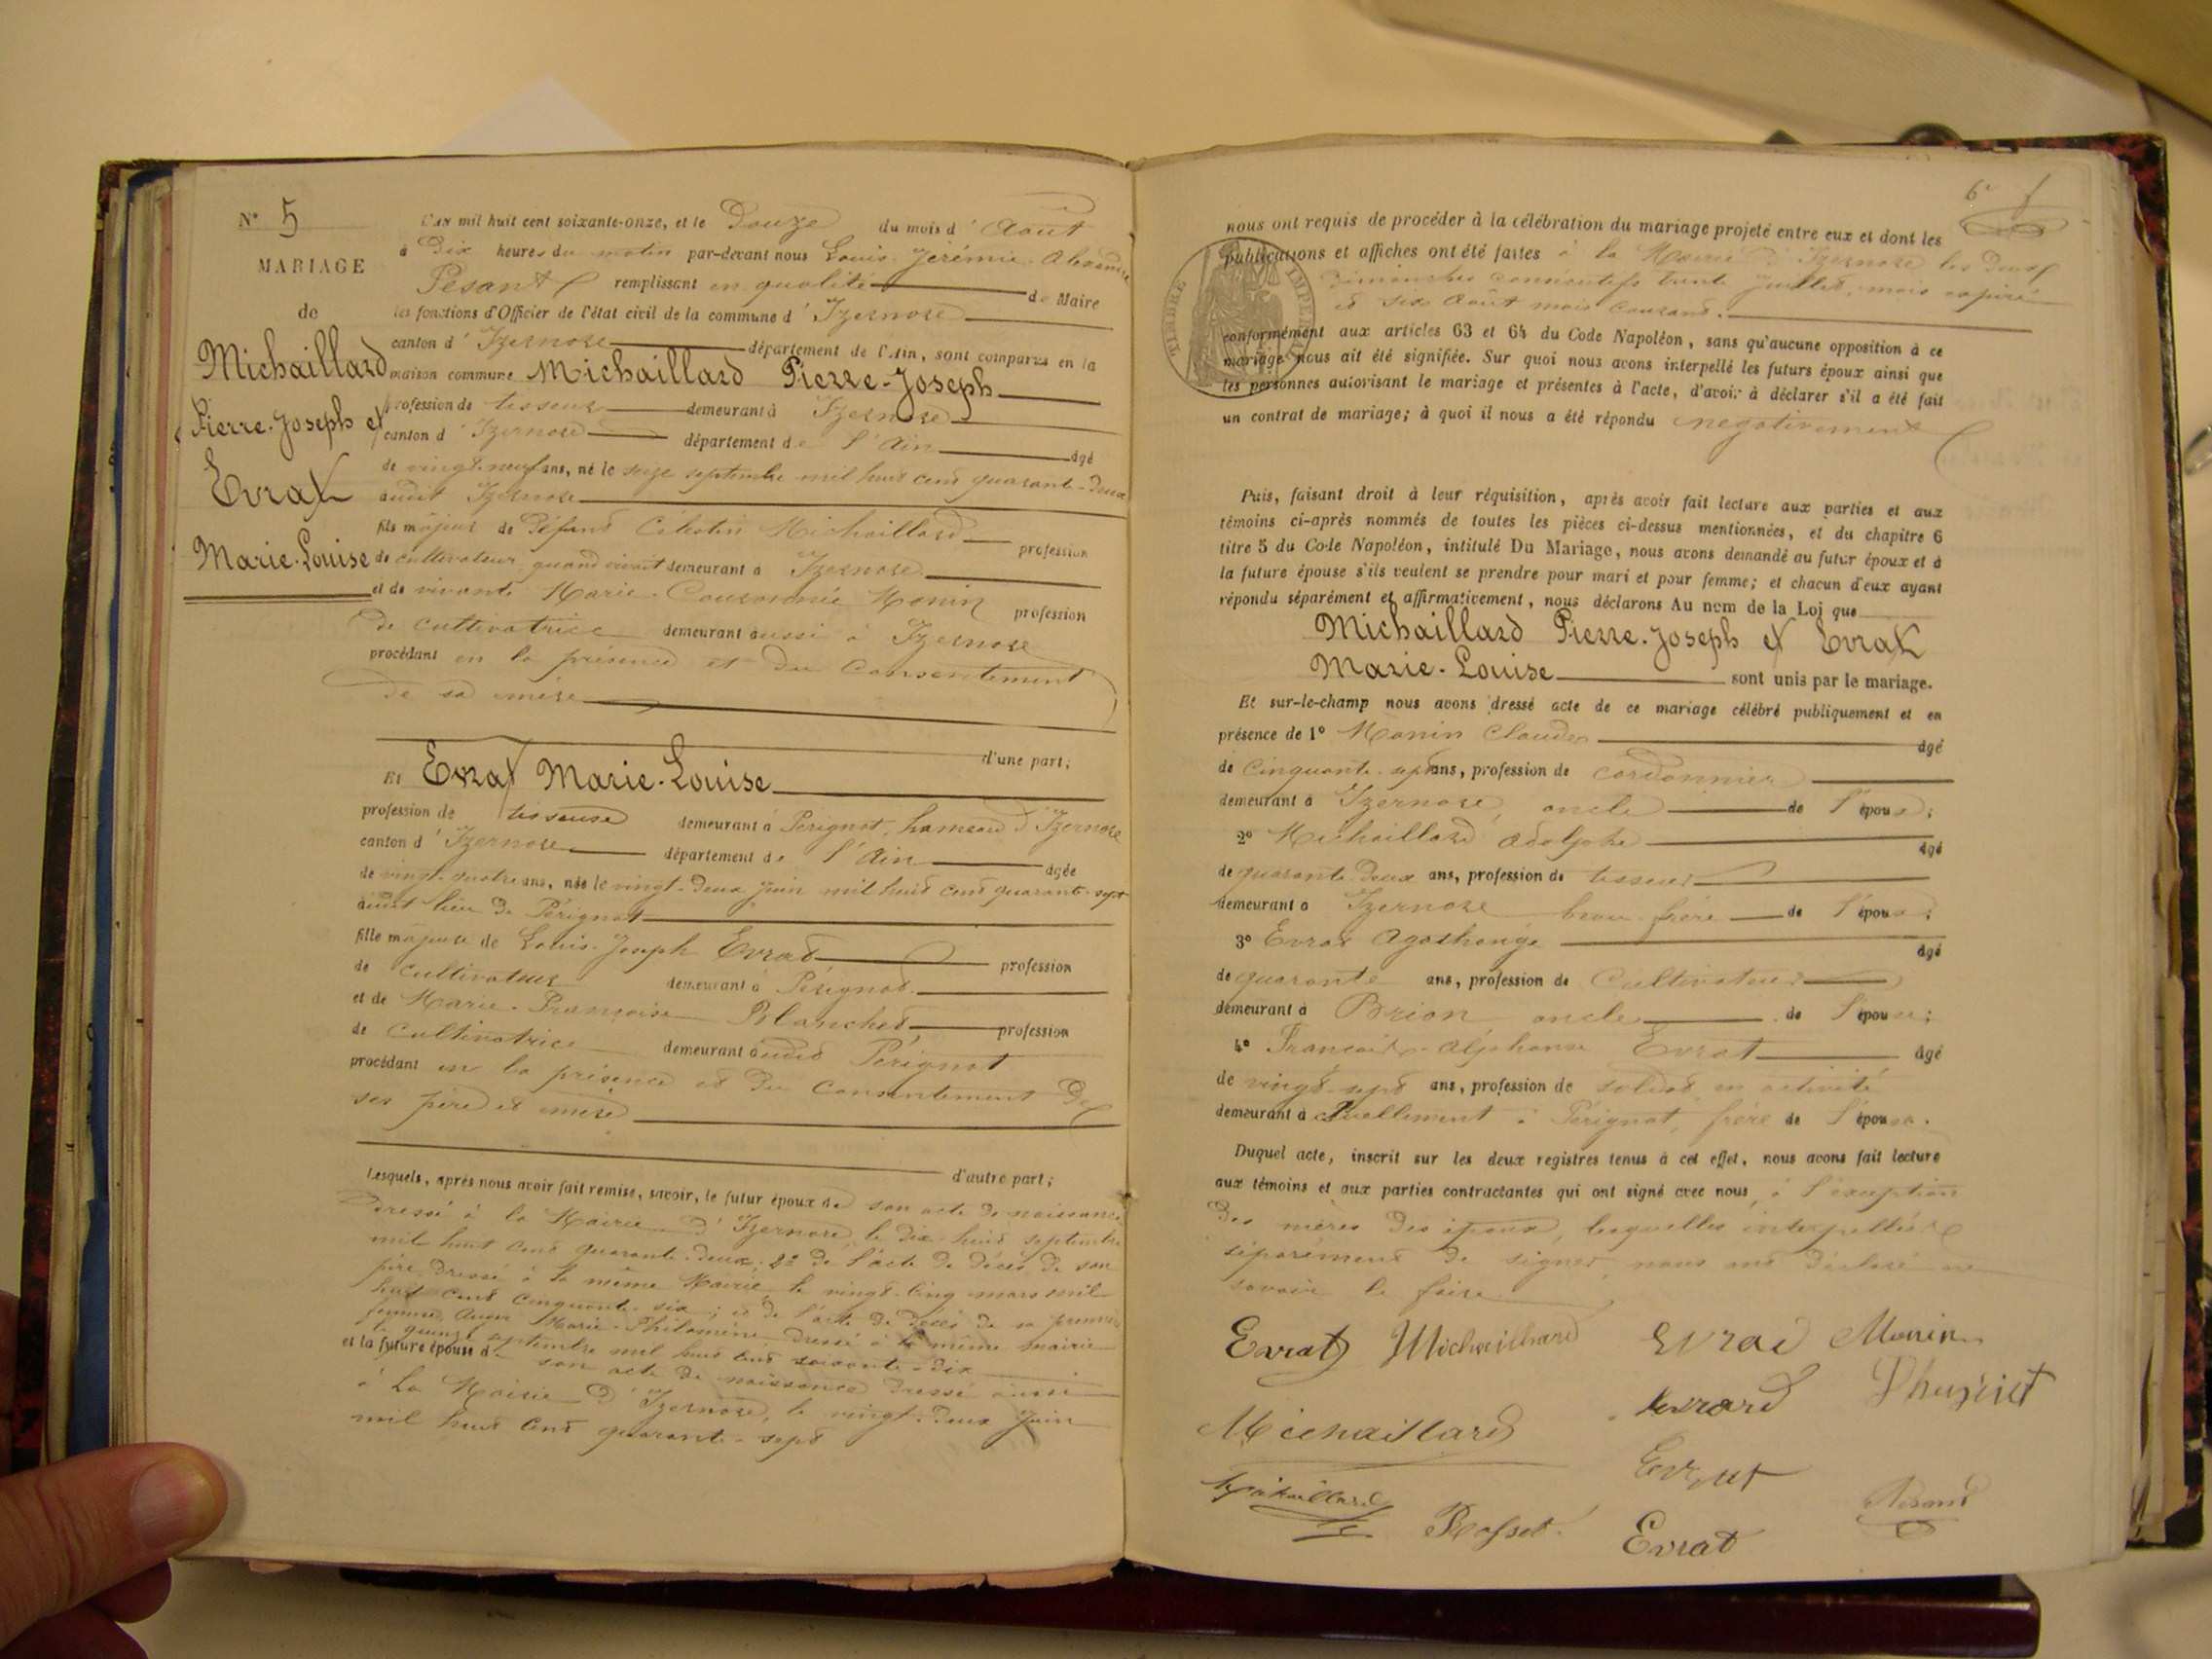 N° 5
MARIAGE
de
Michaillard
Pierre-Joseph et
Evrat
Marie-Louise
L'an mil huit cent soixante-onze, et le Douze du mois d'Août
à Dix heures du matin par-devant nous Louis-Jérémie-Alexandre
Pesant remplissant en qualité de Maire
les fonctions d'Officier de l'état civil de la commune d'Izernore
canton d'Izernore département de l'Ain, sont comparus en la
maison commune Michaillard Pierre-Joseph
profession de tisseur demeurant à Izernore
canton d'Izernore département de l'Ain âgé
de vingt-neuf ans, né le seize septembre mil huit cent quarante-deux
audit Izernore
fils majeur de Défunt Célestin Michaillard profession
de cultivateur, quand vivait demeurant à Izernore
et de vivante Marie- Monin profession
de cultivatrice demeurant aussi à Izernore
procédant en la présence et du consentement
de sa mère
d'une part;
Et Evrat Marie-Louise
profession de tisseuse demeurant à Pérignat, hameau d'Izernore
canton d'Izernore département de l'Ain âgée
de vingt-quatre ans, née le vingt-deux juin mil huit cent quarante-sept
audit lieu de Pérignat
fille majeure de Louis-Joseph Evrat profession
de cultivateur demeurant à Pérignat
et de Marie-Françoise Blanchet profession
de cultivatrice demeurant audit Pérignat
procédant en la présence et du consentement de
ses père et mère
d'autre part;
Lesquels, après nous avoir fait remise, savoir, le futur époux de son acte de naissance
dressé à la Mairie d'Izernore, le dix-huit septembre
mil huit cent quarante-deux; 2° de l'acte de décès de son
père, dressé à la même Mairie, le vingt-cinq mars mil
huit cent cinquante-six; et de l'acte de décès de sa première
femme, Marie-Philomène dressé à la même mairie
le quinze septembre mil huit cent soixante-dix
et la future épouse de son acte de naissance dressé aussi
à la Mairie d'Izernore, le vingt-deux juin
mil huit cent quarante-sept
6
nous ont requis de procéder à la célébration du mariage projeté entre eux et dont les
publications et affiches ont été faites à la Mairie d'Izernore les deux
dimanches consécutifs trente juillet, mois expiré
et six août mois courant.
TIMBRE IMPERIAL
conformément aux articles 63 et 64 du Code Napoléon, sans qu'aucune opposition à ce
mariage nous ait été signifiée. Sur quoi nous avons interpellé les futurs époux ainsi que
les personnes autorisant le mariage et présentes à l'acte, d'avoir à déclarer s'il a été fait
un contrat de mariage; à quoi il nous a été répondu négativement
Puis, faisant droit à leur réquisition, après avoir fait lecture aux parties et aux
témoins ci-après nommés de toutes les pièces ci-dessus mentionnées, et du chapitre 6
titre 5 du Code Napoléon, intitulé Du Mariage, nous avons demandé au futur époux et à
la future épouse s'ils veulent se prendre pour mari et pour femme; et chacun d'eux ayant
répondu séparément et affirmativement, nous déclarons Au nom de la Loi que
Michaillard Pierre-Joseph et Evrat
Marie-Louise sont unis par le mariage.
Et sur-le-champ nous avons dressé acte de ce mariage célébré publiquement et en
présence de 1° Monin Claude âgé
de cinquante-sept ans, profession de cordonnier
demeurant à Izernore, oncle de l'époux;
2° Michaillard Adolphe âgé
de quarante-deux ans, profession de tisseur
demeurant à Izernore beau-frère de l'époux;
3° Evrat Agathange âgé
de quarante ans, profession de cultivateur
demeurant à Brion oncle de l'épouse;
4° François-Alphonse Evrat âgé
de vingt-sept ans, profession de soldat en activité
demeurant à actuellement à Pérignat, frère de l'épouse.
Duquel acte, inscrit sur les deux registres tenus à cet effet, nous avons fait lecture
aux témoins et aux parties contractantes qui ont signé avec nous, à l'exception
des mères des époux, lesquelles interpellées
séparément de signer, nous ont déclaré ne
savoir le faire
Evrat Michaillard Evrad Monin
Michaillard Evrard
Michaillard Rosset Evrat
Evrat Pesant